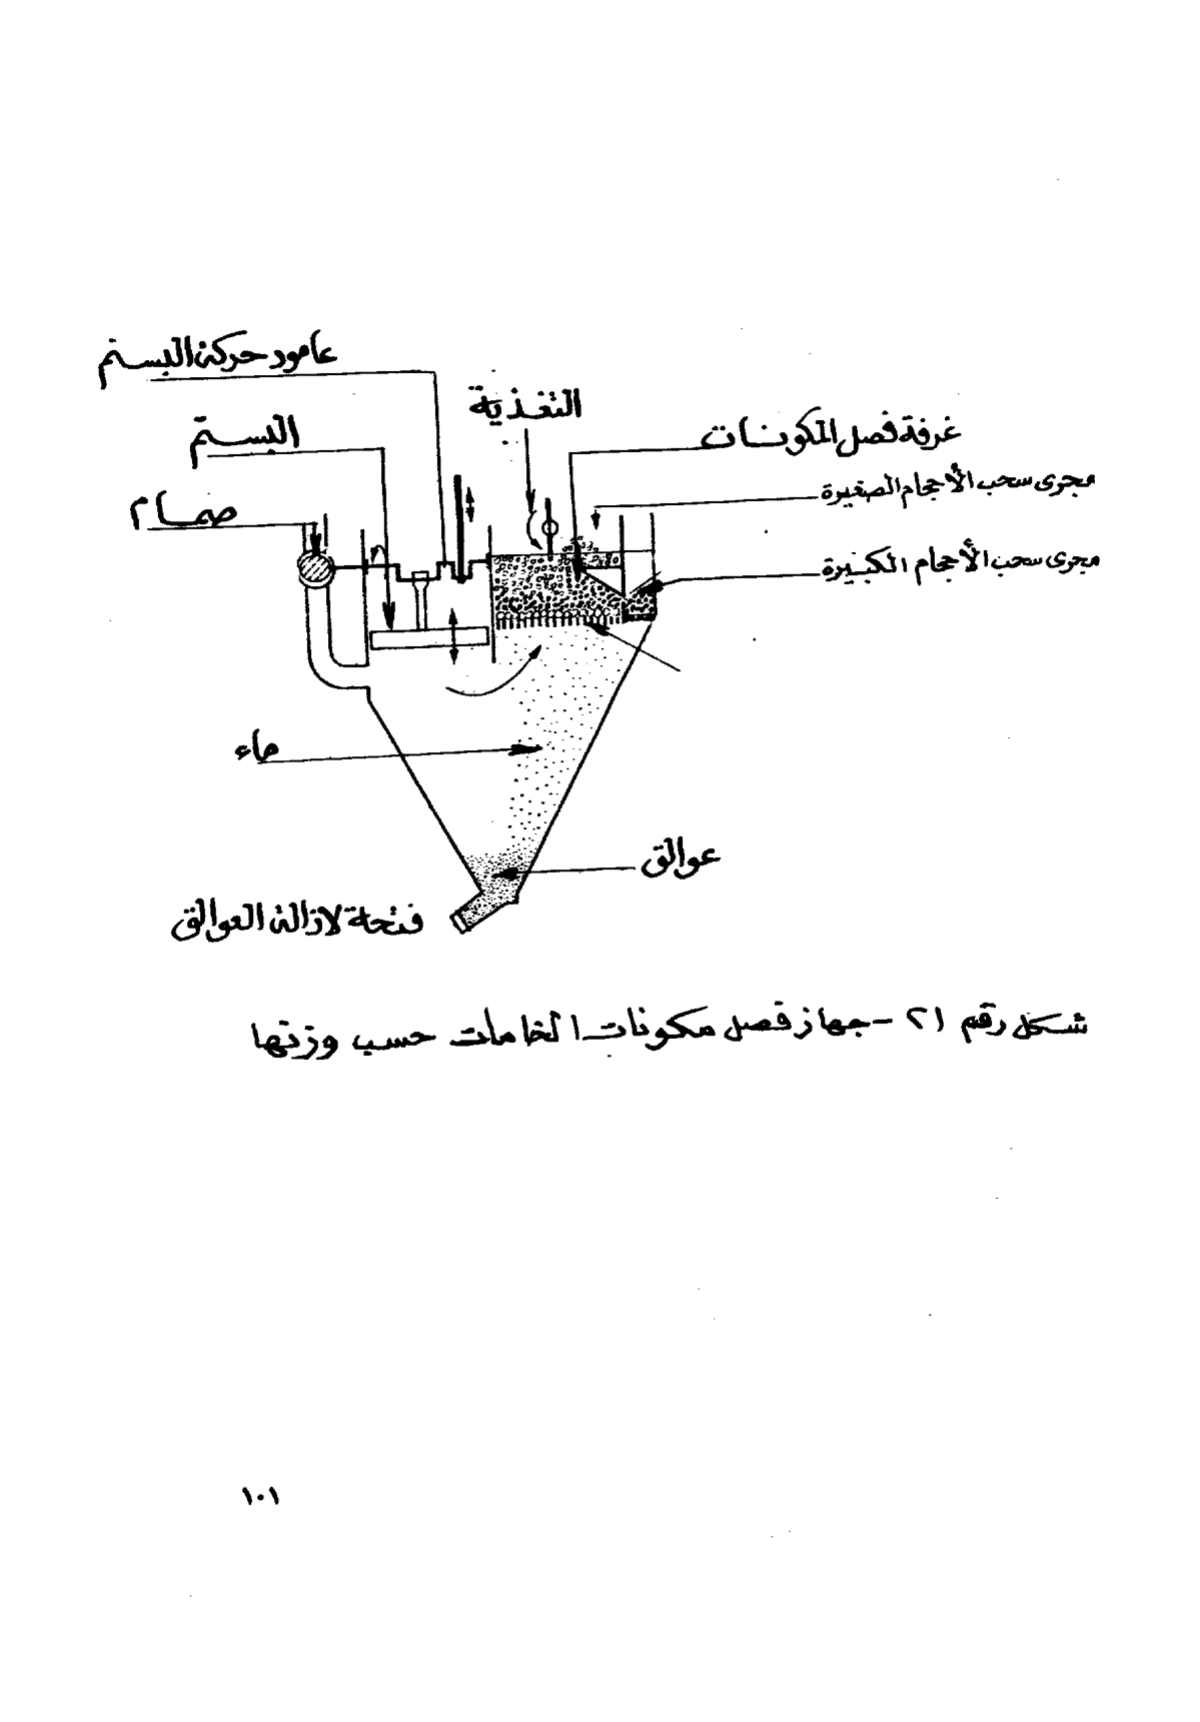 عامود حركة البستم
التغذية
البستم
غرفة فصل المكونات
مجرى سحب الأحجام الصغيرة
صمام
مجرى سحب الأحجام الكبيرة
ماء
عوالق
فتحة لازالة العوالق
شكل رقم ٢١ - جهاز فصل مكونات الخامات حسب وزنها
١٠١